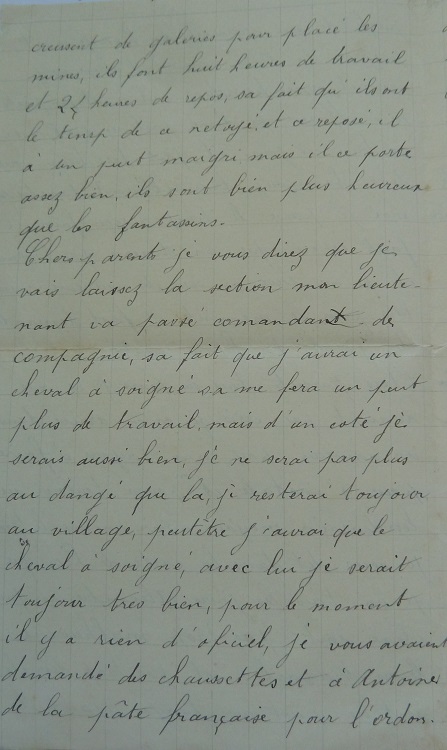 creusent de galeries pour placé les
mines, ils font huit heures de travail
et 24 heures de repos, sa fait qu'ils ont
le temp de ce netoyé, et ce reposé, il
à un peut maigri mais il ce porte
assez bien, ils sont bien plus heureux
que les fantassins.
Chers parents je vous direz que je
vais laissez la section mon lieute-
nant va passé comandant de
compagnie, sa fait que j'aurai un
cheval à soigné sa me fera un peut
plus de travail, mais d'un coté je
serais aussi bien, je ne serai pas plus
au dangé que la, je resterai toujour
au village, peutètre j'aurai que le
cheval à soigné, avec lui je serait
toujour tres bien, pour le moment
il y a rien d'oficiel, je vous avaient
demandé des chaussettes et à Antoine
de la pâte française pour l'ordon.